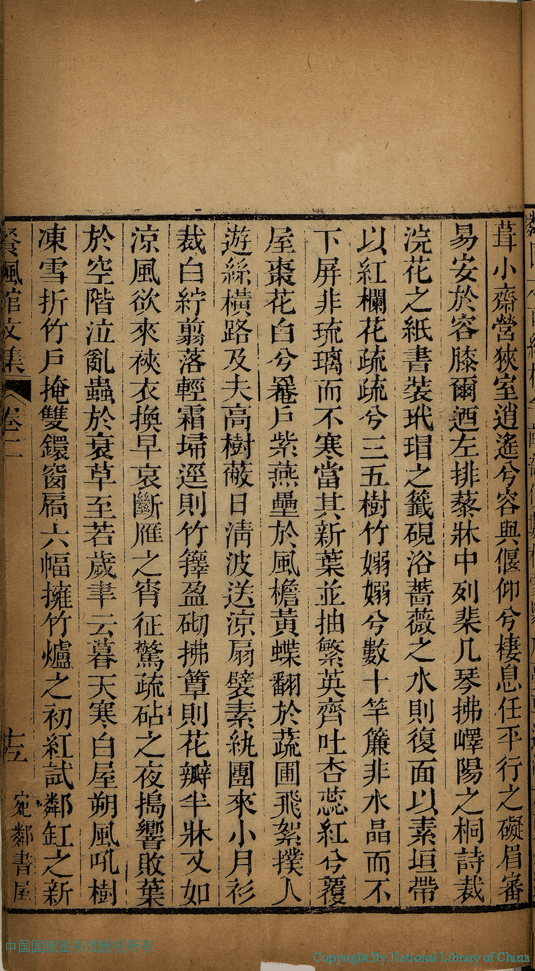 葺小齋營狹室逍遙兮容與偃仰兮棲息任平行之礙眉審
易安於容膝爾迺左排藜牀中列棐几琴拂嶧陽之桐詩裁
浣花之紙書裝玳瑁之籤硯浴薔薇之水則復面以素垣帶
以紅欄花疏疏兮三五樹竹嫋嫋兮數十竿簾非水晶而不
下屏非琉璃而不寒當其新葉並抽繁英齊吐杏蕊紅兮覆
屋棗花白兮卷戶紫燕壘於風檐黃蝶翻於蔬圃飛絮撲人
遊絲橫路及夫高樹蔽日淸波送涼扇襞素紈團來小月衫
裁白紵翦落輕霜埽逕則竹籜盈砌拂簟則花瓣半牀又如
涼風欲來裌衣換早哀斷雁之宵征驚疏砧之夜搗響敗葉
於空階泣亂蟲於衰草至若歲聿云暮天寒白屋朔風吼樹
凍雪折竹戶掩雙鐶窗扃六幅擁竹爐之初紅試鄰缸之新
餐楓館文集 卷二 十五 宛鄰書屋
中国国家图书馆版权所有
Copyright By National Library of China